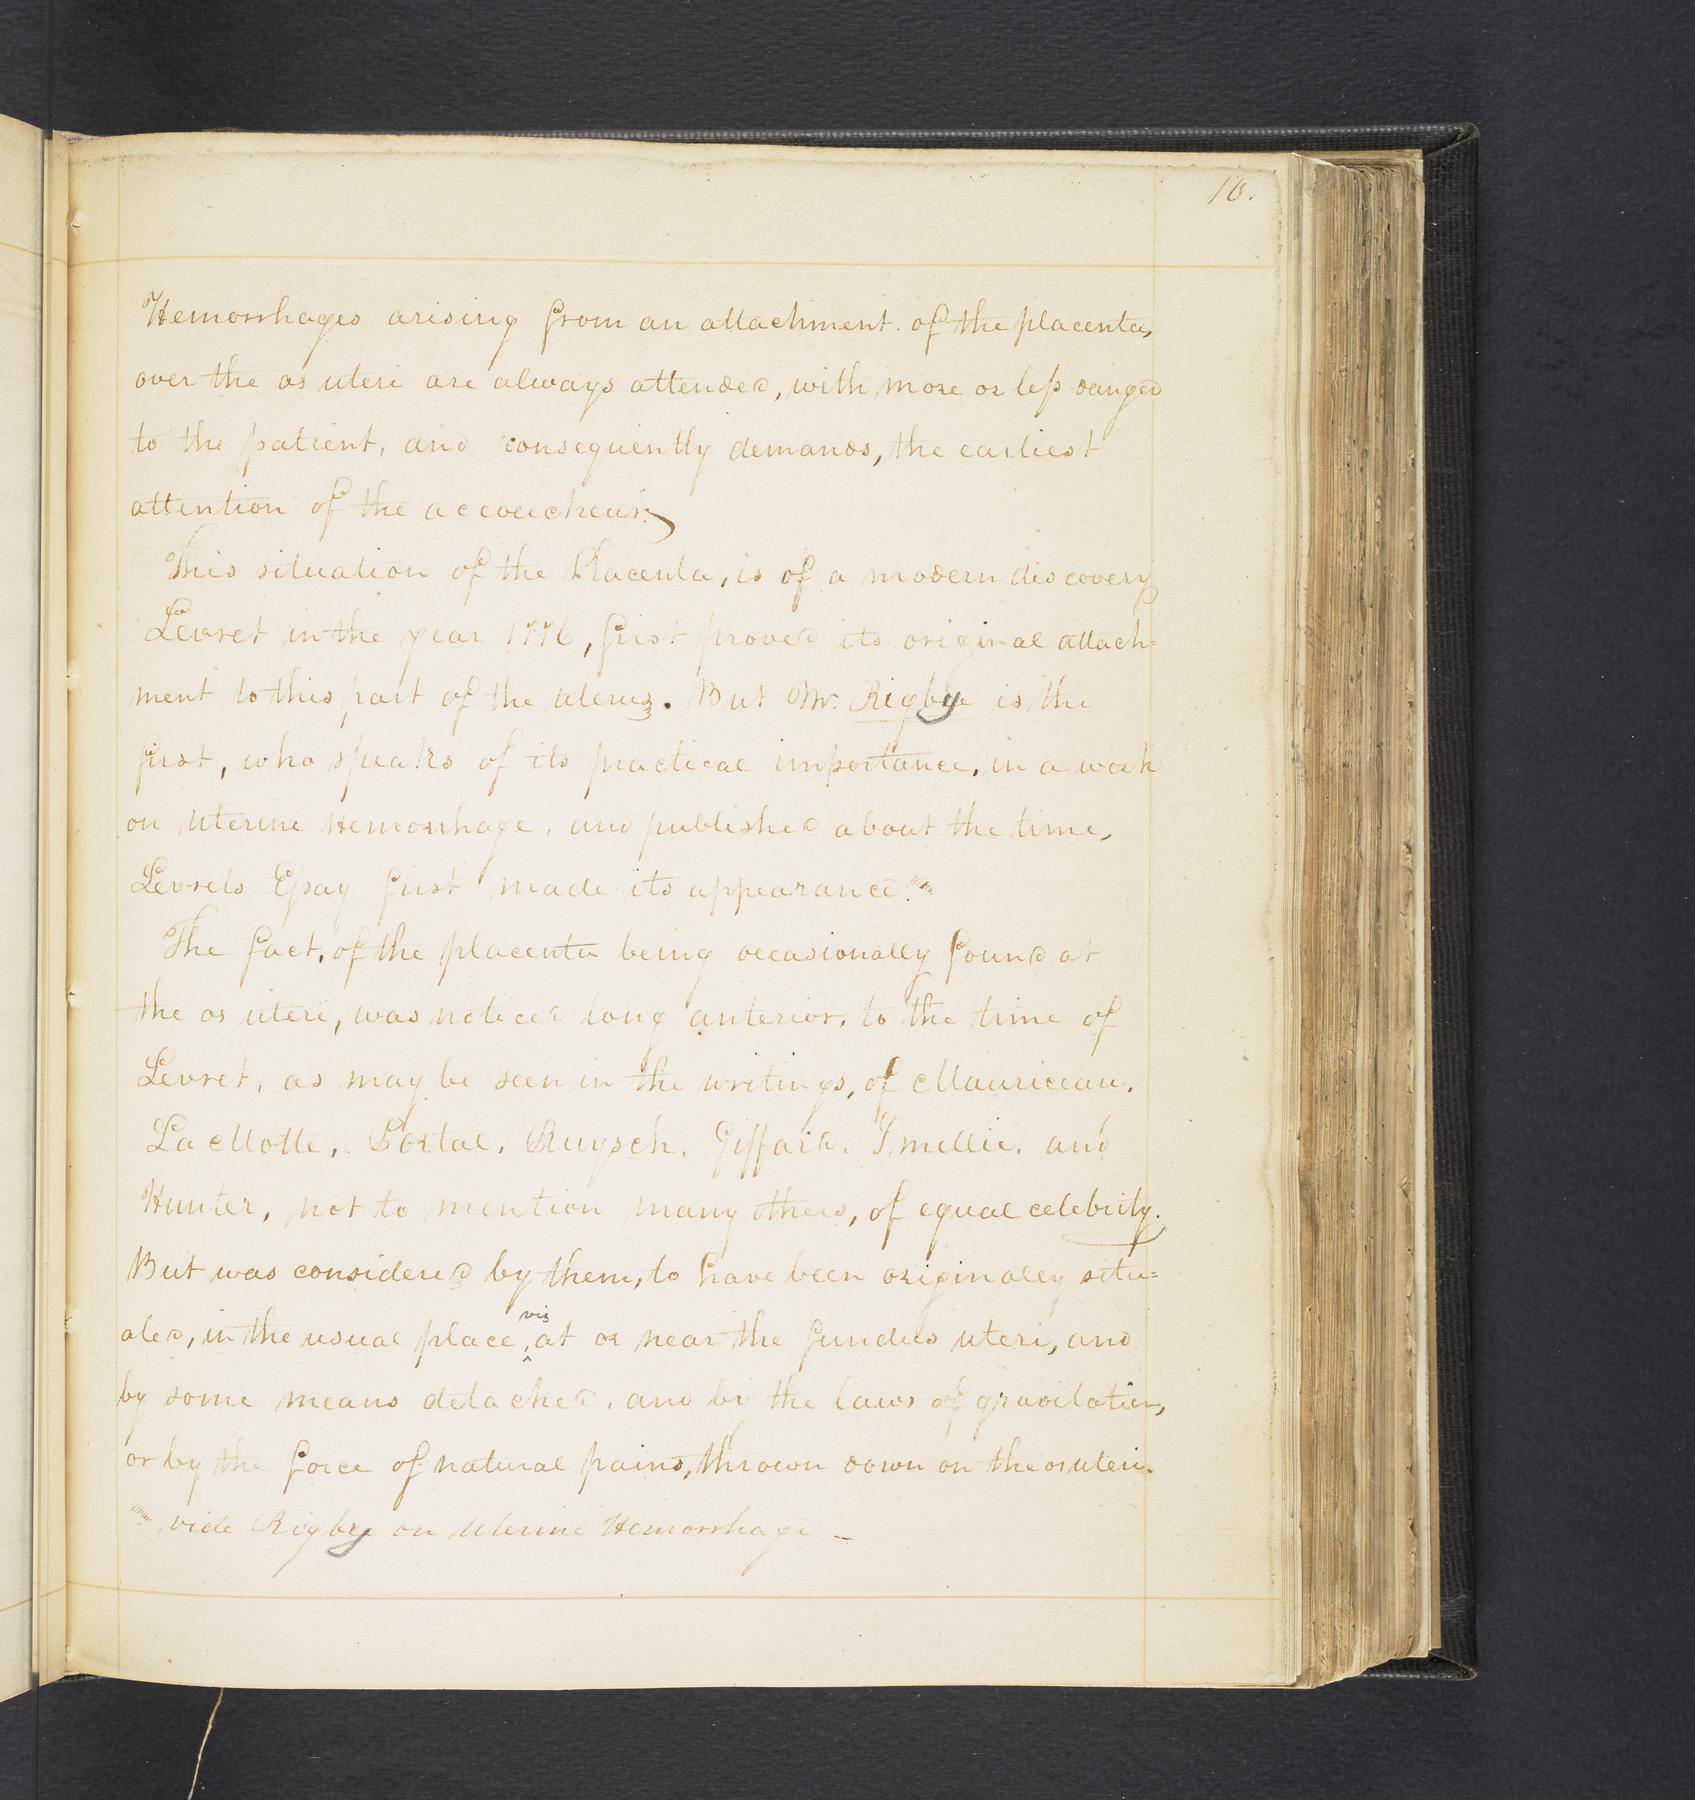 16.
Hemorrhages arising from an attachment. of the placenta,
over the os uteri are always attended, with more or less danger
to the patient, and consequently demands, the earliest
attention of the accoucheur,
This situation of the Placenta, is of a modern discovery
Levret in the year 1776, first proved its original attach=
ment to this part of the uterus. But Mr. Rigby is the
first, who speaks of its practical importance, in a work
on uterine Hemorrhage, and published about the time,
Levrets Essay first made its appearance."
The fact, of the placenta being occasionally found at
the os uteri, was noticed long anterior, to the time of
Levret, as may be seen in the writings, of Mauriceau,
La Motte, Portal, Ruysch, Giffard, Smellie, and
Hunter, not to mention many others, of equal celebrity.
But was considered by them, to have been originally situ=
ated, in the usual place, ^viz at or near the fundus uteri, and
by some means detached, and by the laws of gravitation,
or by the force of natural pains, thrown down on the os uteri.
" vide Rigby on uterine Hemorrhage –